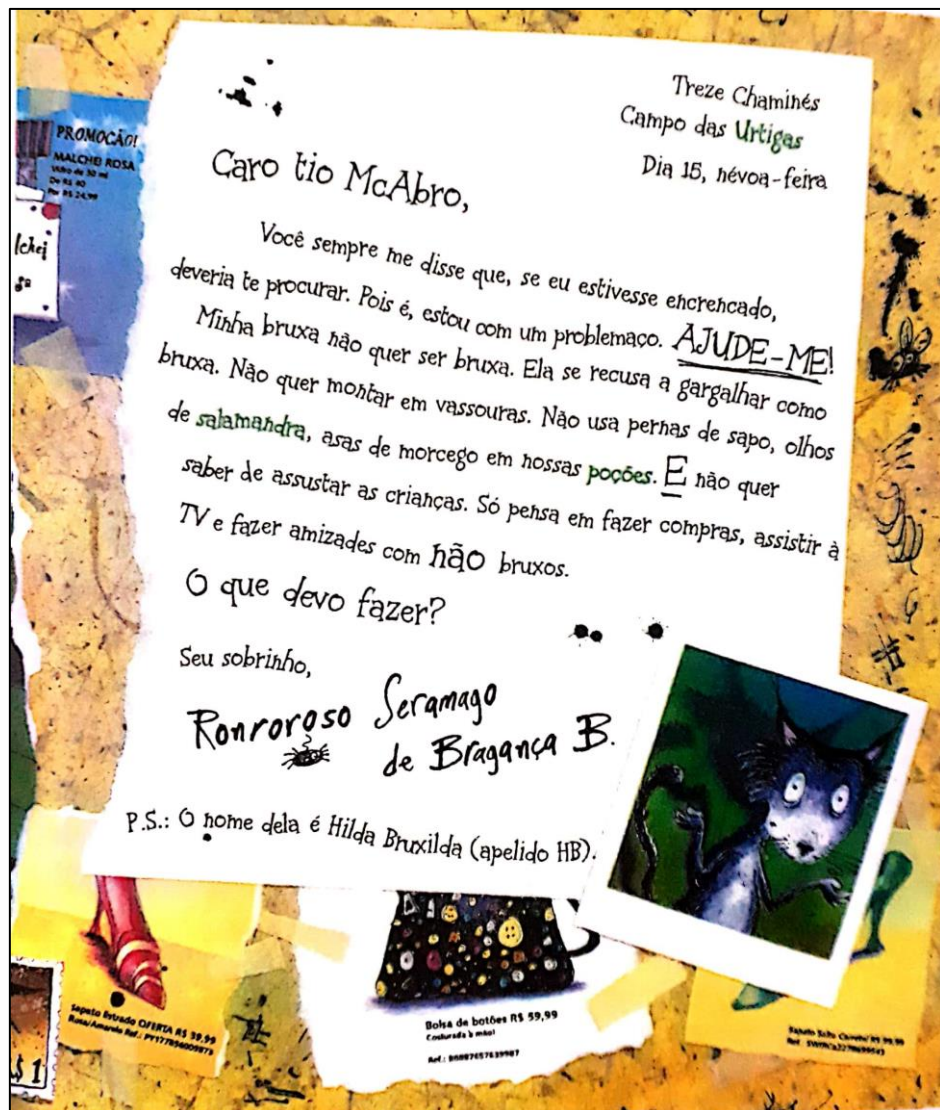 Treze Chaminés
Campo das Urtigas
Dia 15, névoa-feira
Caro tio McAbro,
Você sempre me disse que, se eu estivesse encrencado,
deveria te procurar. Pois é, estou com um problemaço. AJUDE-ME!
Minha bruxa não quer ser bruxa. Ela se recusa a gargalhar como
bruxa. Não quer montar em vassouras. Não usa pernas de sapo, olhos
de salamandra, asas de morcego em nossas poções. E não quer
saber de assustar as crianças. Só pensa em fazer compras, assistir à
TV e fazer amizades com não bruxos.
O que devo fazer?
Seu sobrinho,
Ronroroso Seramago
de Bragança B.
P.S.: O nome dela é Hilda Bruxilda (apelido HB).
PROMOÇÃO!
MALCHEI ROSA
Vidro de 30 ml
De R$ 40
Por R$ 24,99
lchei
Sapato Estrado OFERTA R$ 39,99
Rosa/Amarelo Ref.:
Bolsa de botões R$ 59,99
Costurada à mão!
Ref.:
$ 1